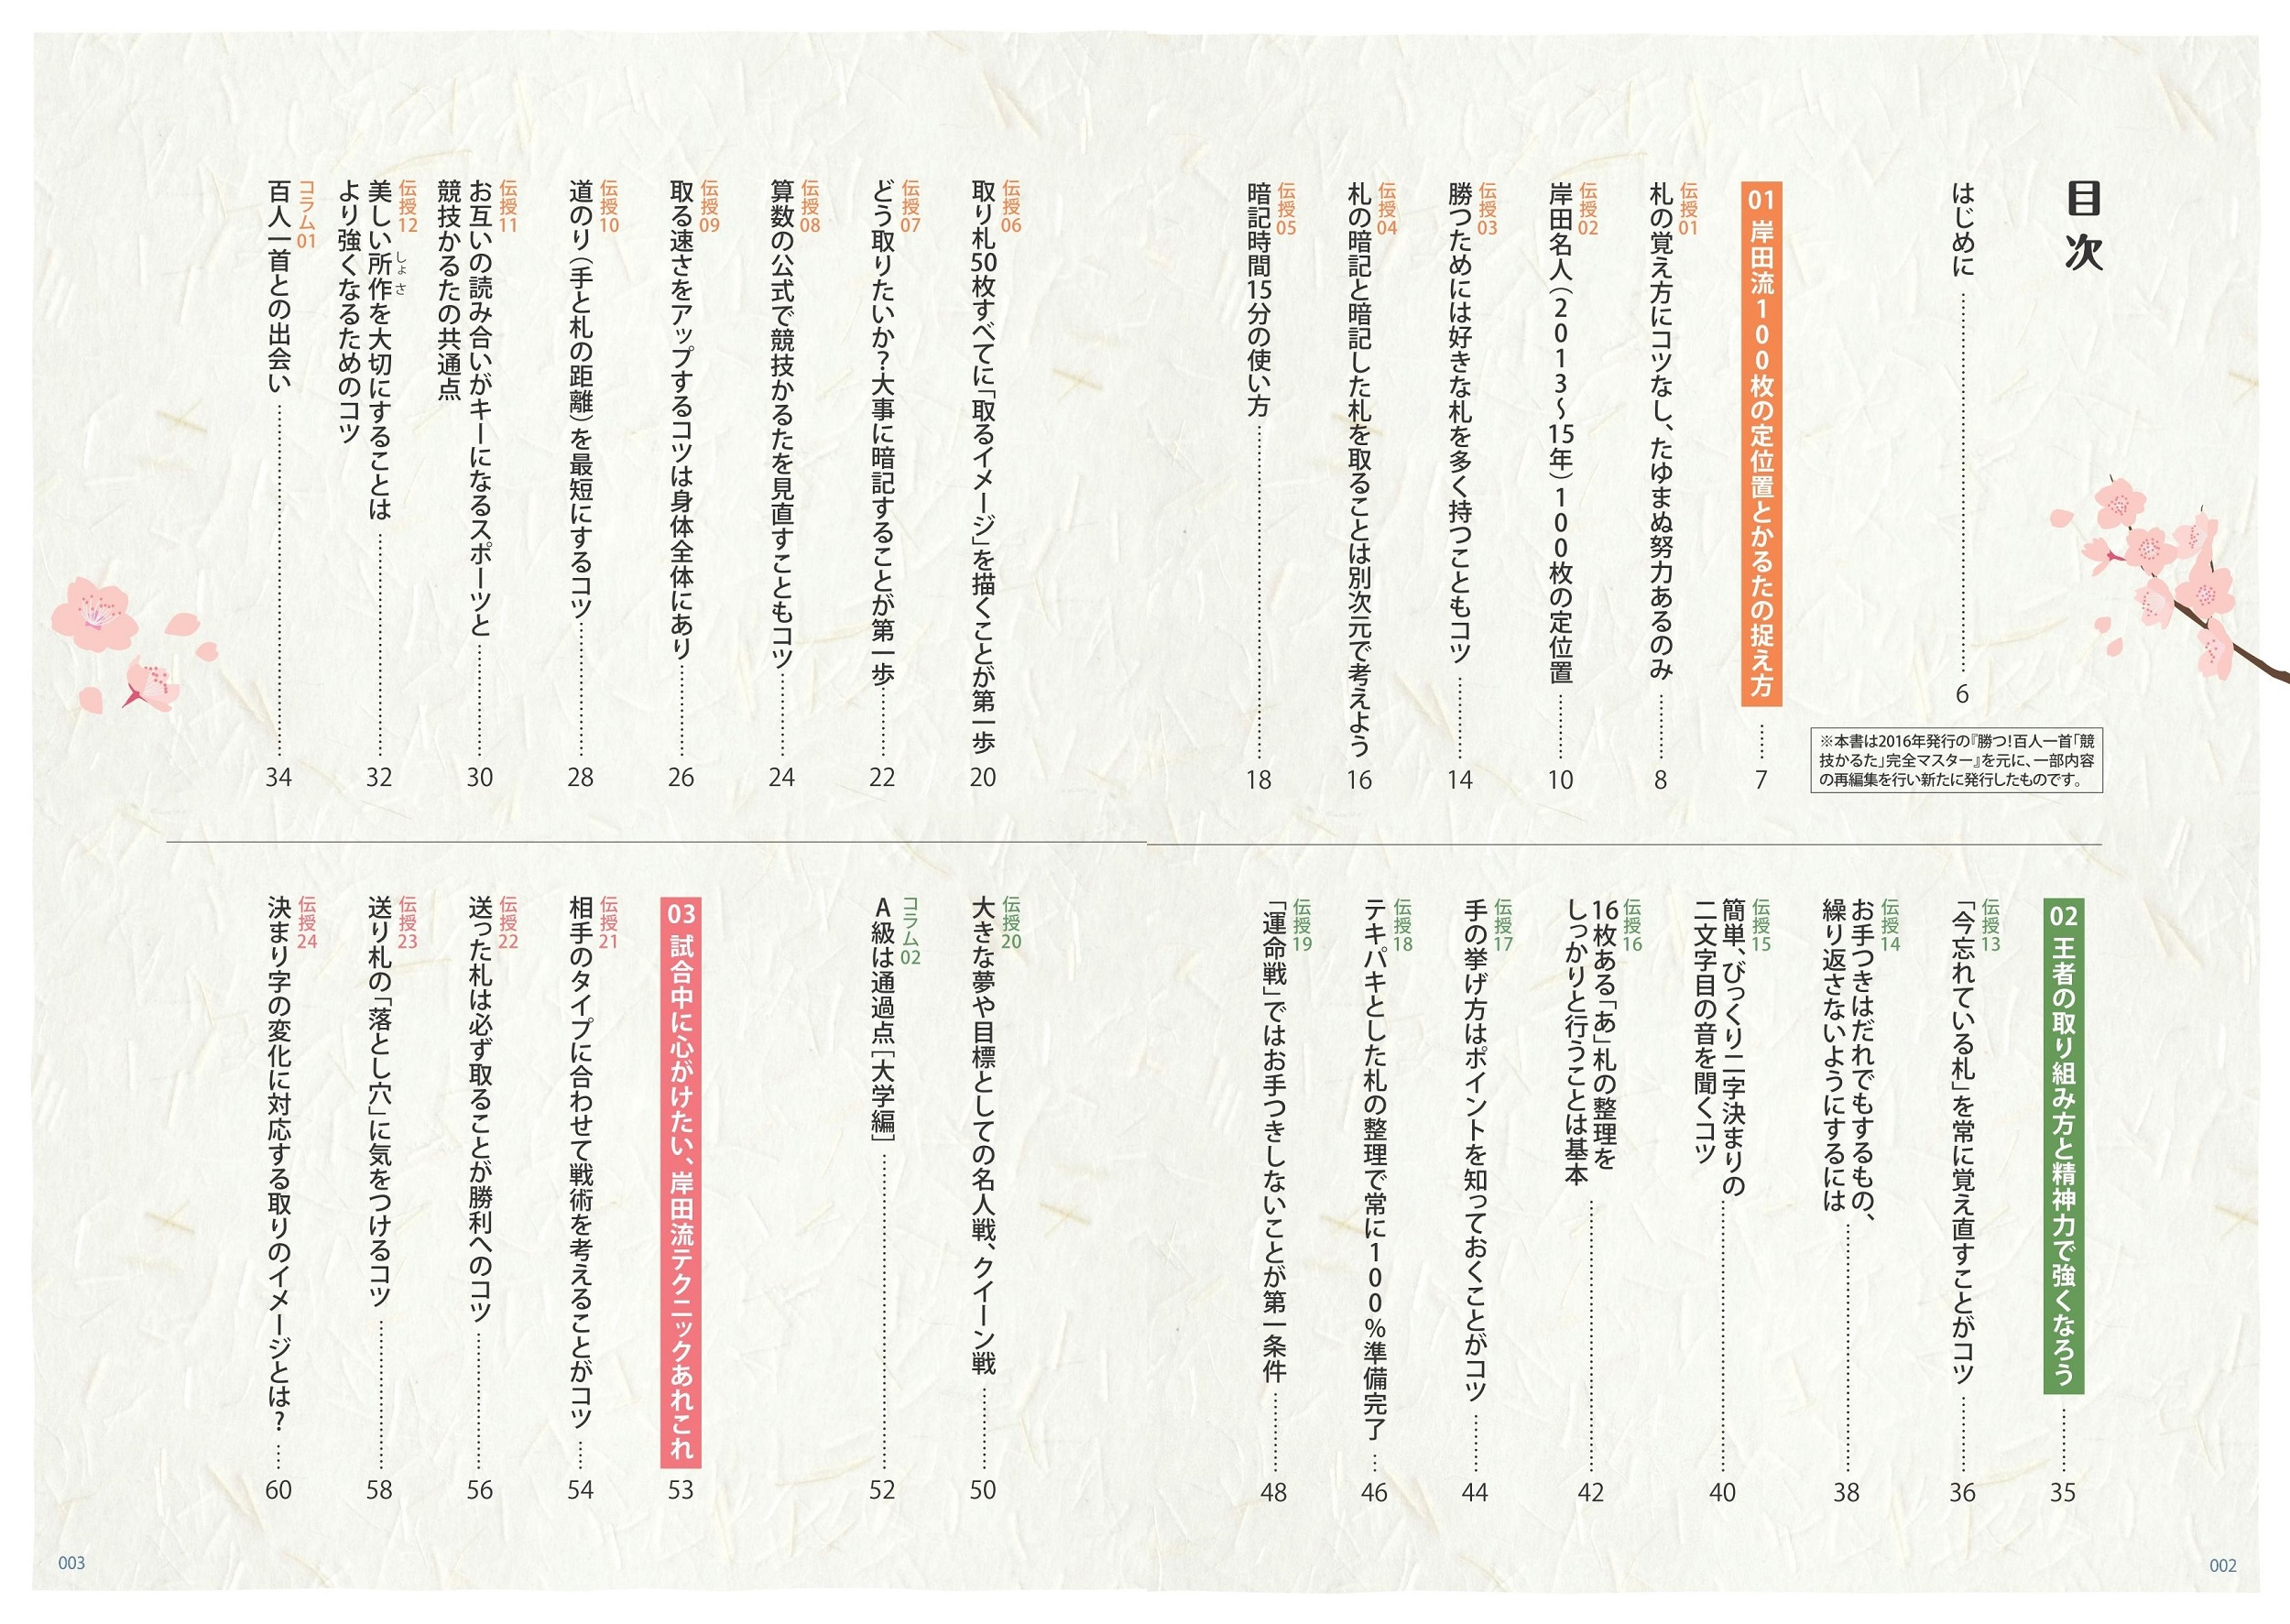 目次
はじめに ……… 6
※本書は2016年発行の『勝つ！百人一首「競
技かるた」完全マスター』を元に、一部内容
の再編集を行い新たに発行したものです。
01 岸田流100枚の定位置とかるたの捉え方 ……… 7
伝授01
札の覚え方にコツなし、たゆまぬ努力あるのみ ……… 8
伝授02
岸田名人（2013〜15年）100枚の定位置 ……… 10
伝授03
勝つためには好きな札を多く持つこともコツ ……… 14
伝授04
札の暗記と暗記した札を取ることは別次元で考えよう 16
伝授05
暗記時間15分の使い方 ……… 18
伝授06
取り札50枚すべてに「取るイメージ」を描くことが第一歩 20
伝授07
どう取りたいか？大事に暗記することが第一歩 ……… 22
伝授08
算数の公式で競技かるたを見直すこともコツ ……… 24
伝授09
取る速さをアップするコツは身体全体にあり ……… 26
伝授10
道のり（手と札の距離）を最短にするコツ ……… 28
伝授11
お互いの読み合いがキーになるスポーツと
競技かるたの共通点 ……… 30
伝授12
美しい所作（しょさ）を大切にすることは
より強くなるためのコツ ……… 32
コラム01
百人一首との出会い ……… 34
02 王者の取り組み方と精神力で強くなろう ……… 35
伝授13
「今忘れている札」を常に覚え直すことがコツ ……… 36
伝授14
お手つきはだれでもするもの、
繰り返さないようにするには ……… 38
伝授15
簡単、びっくり二字決まりの
二文字目の音を聞くコツ ……… 40
伝授16
16枚ある「あ」札の整理を
しっかりと行うことは基本 ……… 42
伝授17
手の挙げ方はポイントを知っておくことがコツ ……… 44
伝授18
テキパキとした札の整理で常に100％準備完了 ……… 46
伝授19
「運命戦」ではお手つきしないことが第一条件 ……… 48
伝授20
大きな夢や目標としての名人戦、クイーン戦 ……… 50
コラム02
A級は通過点［大学編］ ……… 52
03 試合中に心がけたい、岸田流テクニックあれこれ 53
伝授21
相手のタイプに合わせて戦術を考えることがコツ ……… 54
伝授22
送った札は必ず取ることが勝利へのコツ ……… 56
伝授23
送り札の「落とし穴」に気をつけるコツ ……… 58
伝授24
決まり字の変化に対応する取りのイメージとは？ ……… 60
002
003